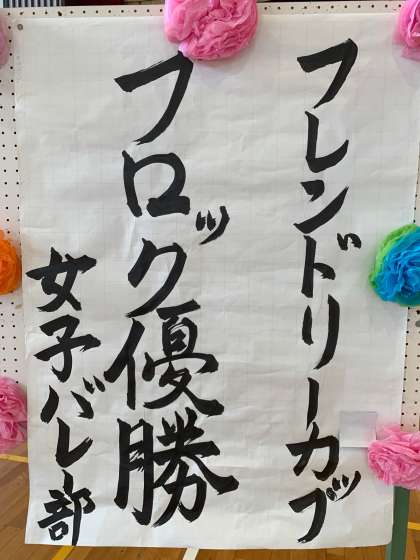 フレンドリーカップ
ブロック優勝
女子バレー部